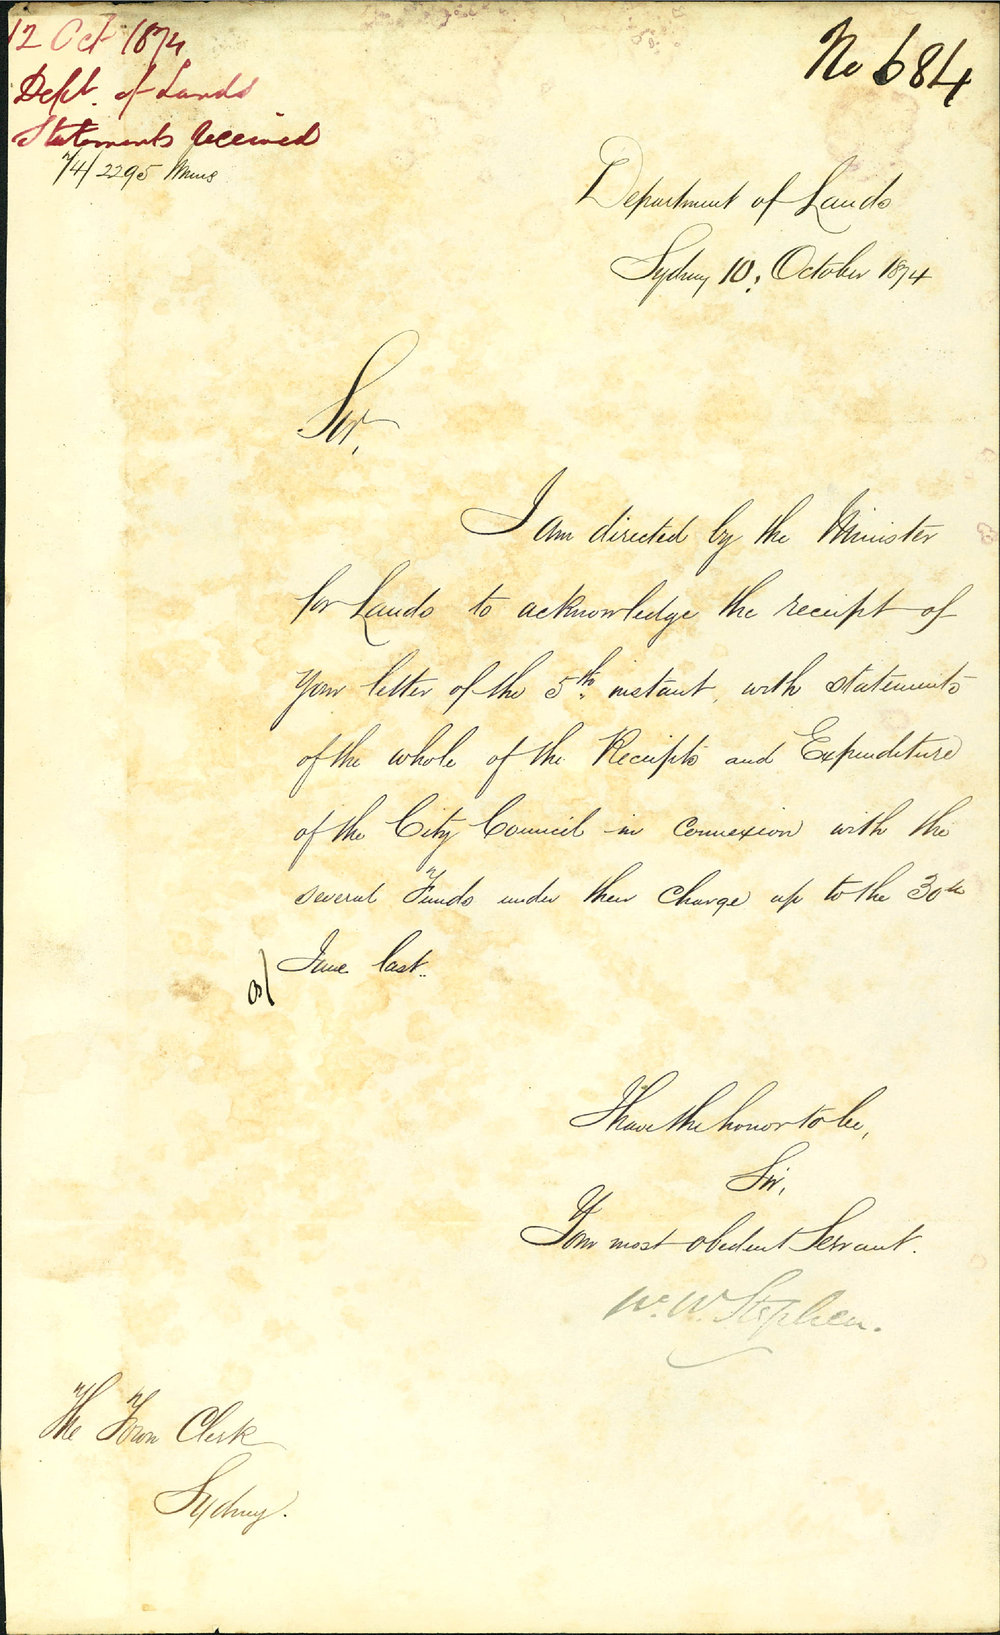 12 Oct 1874
Dept. of Lands
Statements received
74/2295
No 684
Department of Lands
Sydney 10, October 1874
Sir,
I am directed by the Minister
for Lands to acknowledge the receipt of
your letter of the 5th instant, with statements
of the whole of the Receipts and Expenditure
of the City Council in connexion with the
several Funds under their charge up to the 30th
June last.
I have the honor to be,
Sir,
Your most obedient Servant.
W. W. Stephen.
The Town Clerk
Sydney.